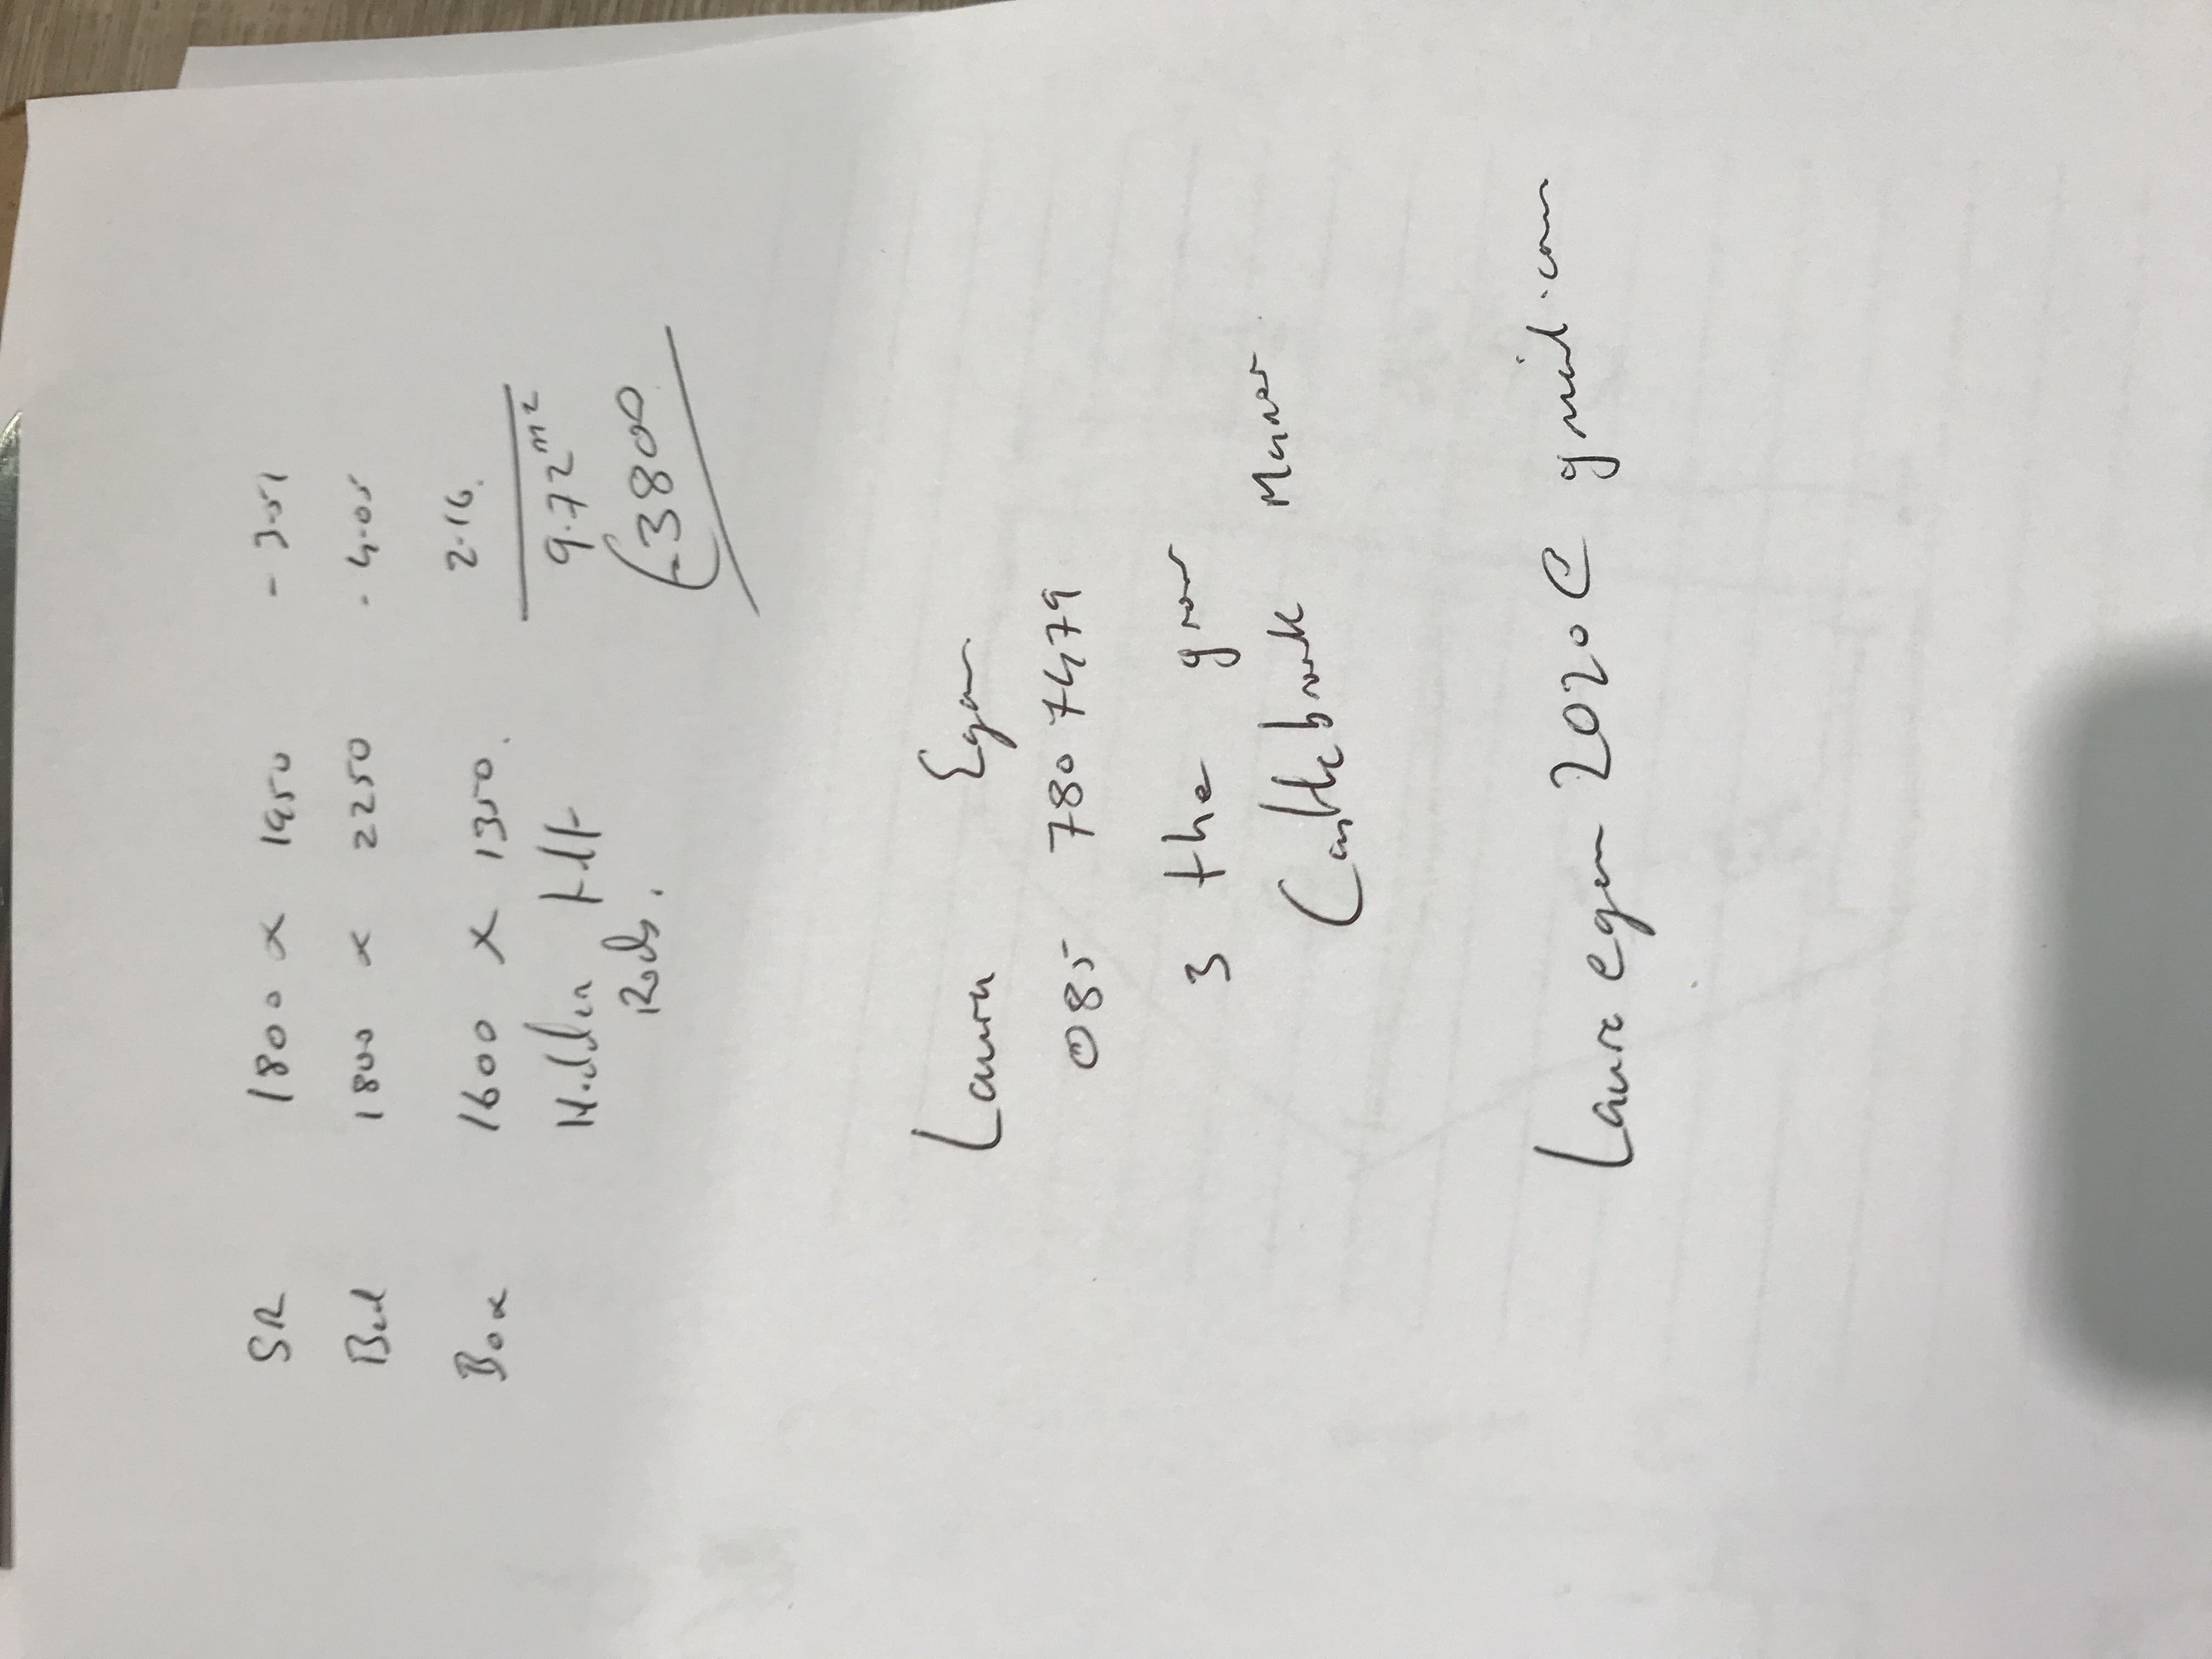 SR 1800 x 1950 - 3.51
Bed 1800 x 2250 . 4.05
Box 1600 x 1350. 2.16.
Hidden tilt 9.72m2
Rods. 3800
Laura Egan
085 780 7479
3 the grov
Castlebrook Manor
Laura egan 2020@ gmail.com